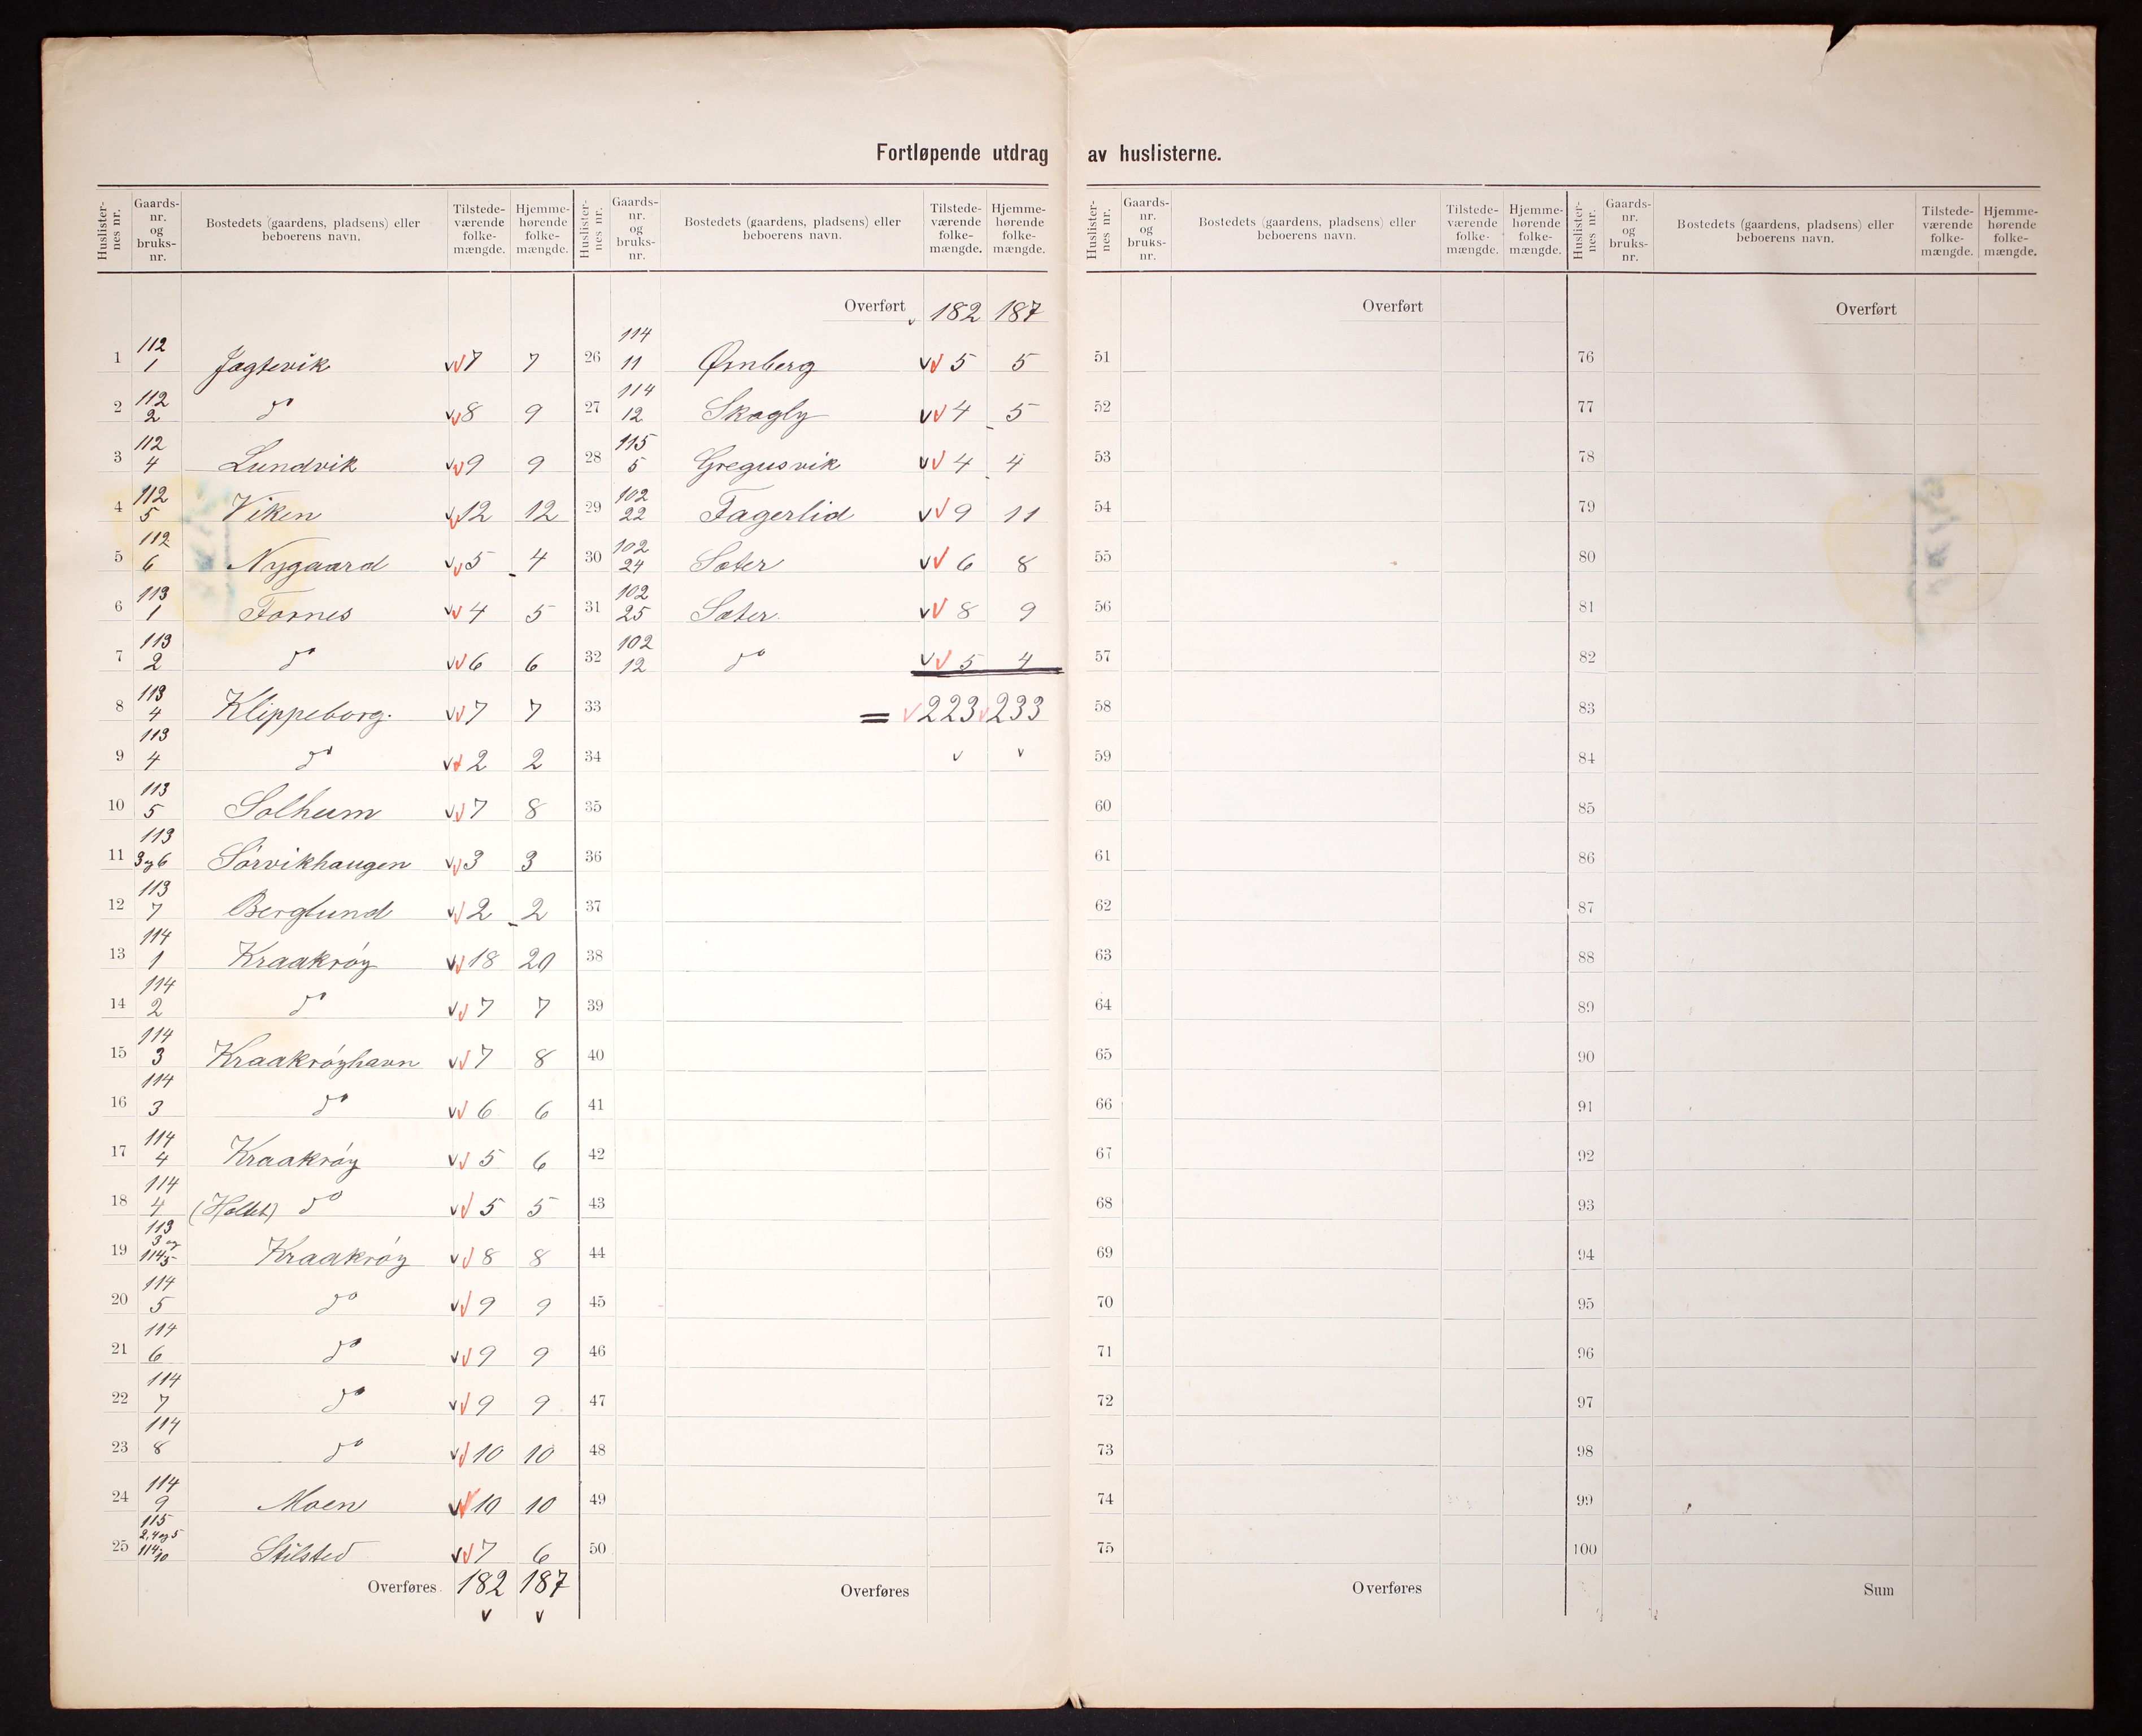 Fortløpende utdrag av huslisterne.
Huslister-nes nr. | Gaards-nr. og bruks-nr. | Bostedets (gaardens, pladsens) eller beboerens navn. | Tilstede-værende folke-mængde. | Hjemme-hørende folke-mængde.
1 112 1 Jagtevik vv 7 7
2 112 2 do vv 8 9
3 112 4 Lundvik vv 9 9
4 112 5 Viken vv 12 12
5 112 6 Nygaard vv 5 4
6 113 1 Fornes vv 4 5
7 113 2 do vv 6 6
8 113 4 Klippeborg. vv 7 7
9 113 4 do vv 2 2
10 113 5 Solheim vv 7 8
11 113 3 og 6 Sörvikhaugen vv 3 3
12 113 7 Berglund vv 2 2
13 114 1 Kraakröy vv 18 20
14 114 2 do vv 7 7
15 114 3 Kraakröyhavn vv 7 8
16 114 3 do vv 6 6
17 114 4 Kraakröy vv 5 6
18 114 4 (Holtet) do vv 5 5
19 113 3 og 114 5 Kraakröy vv 8 8
20 114 5 do vv 9 9
21 114 6 do vv 9 9
22 114 7 do vv 9 9
23 114 8 do vv 10 10
24 114 9 Moen vv 10 10
25 115 2,4 og 5 114 10 Stilsted vv 7 6
Overføres. 182 187
v v
Huslister-nes nr. | Gaards-nr. og bruks-nr. | Bostedets (gaardens, pladsens) eller beboerens navn. | Tilstede-værende folke-mængde. | Hjemme-hørende folke-mængde.
Overført v 182 187
26 114 11 Ørnberg vv 5 5
27 114 12 Skogly vv 4 5
28 115 5 Gregusvik vv 4 4
29 102 22 Fagerlid vv 9 11
30 102 24 Sæter vv 6 8
31 102 25 Sæter vv 8 9
32 102 12 do vv 5 4
33 = v 223 v 233
34 v v
35
36
37
38
39
40
41
42
43
44
45
46
47
48
49
50
Overføres
Huslister-nes nr. | Gaards-nr. og bruks-nr. | Bostedets (gaardens, pladsens) eller beboerens navn. | Tilstede-værende folke-mængde. | Hjemme-hørende folke-mængde.
Overført
51
52
53
54
55
56
57
58
59
60
61
62
63
64
65
66
67
68
69
70
71
72
73
74
75
Overføres
Huslister-nes nr. | Gaards-nr. og bruks-nr. | Bostedets (gaardens, pladsens) eller beboerens navn. | Tilstede-værende folke-mængde. | Hjemme-hørende folke-mængde.
Overført
76
77
78
79
80
81
82
83
84
85
86
87
88
89
90
91
92
93
94
95
96
97
98
99
100
Sum